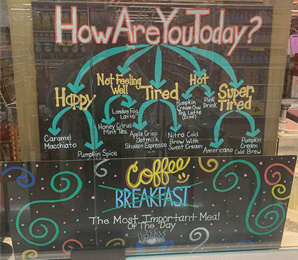 How Are You Today?
Not Feeling
Well
Hot
Happy
Tired
Super
Tired
London Fog
Latte
Honey Citrus
Mint Tea
Pumpkin
Cream Chai
Tea Latte
Pink
Drink
Caramel
Macchiato
Pumpkin Spice
Apple Crisp
Oatmilk
Shaken Espresso
Nitro Cold
Brew With
Sweet Cream
Americano
Pumpkin
Cream
Cold Brew
Coffee
BREAKFAST
The Most Important Meal
Of The Day